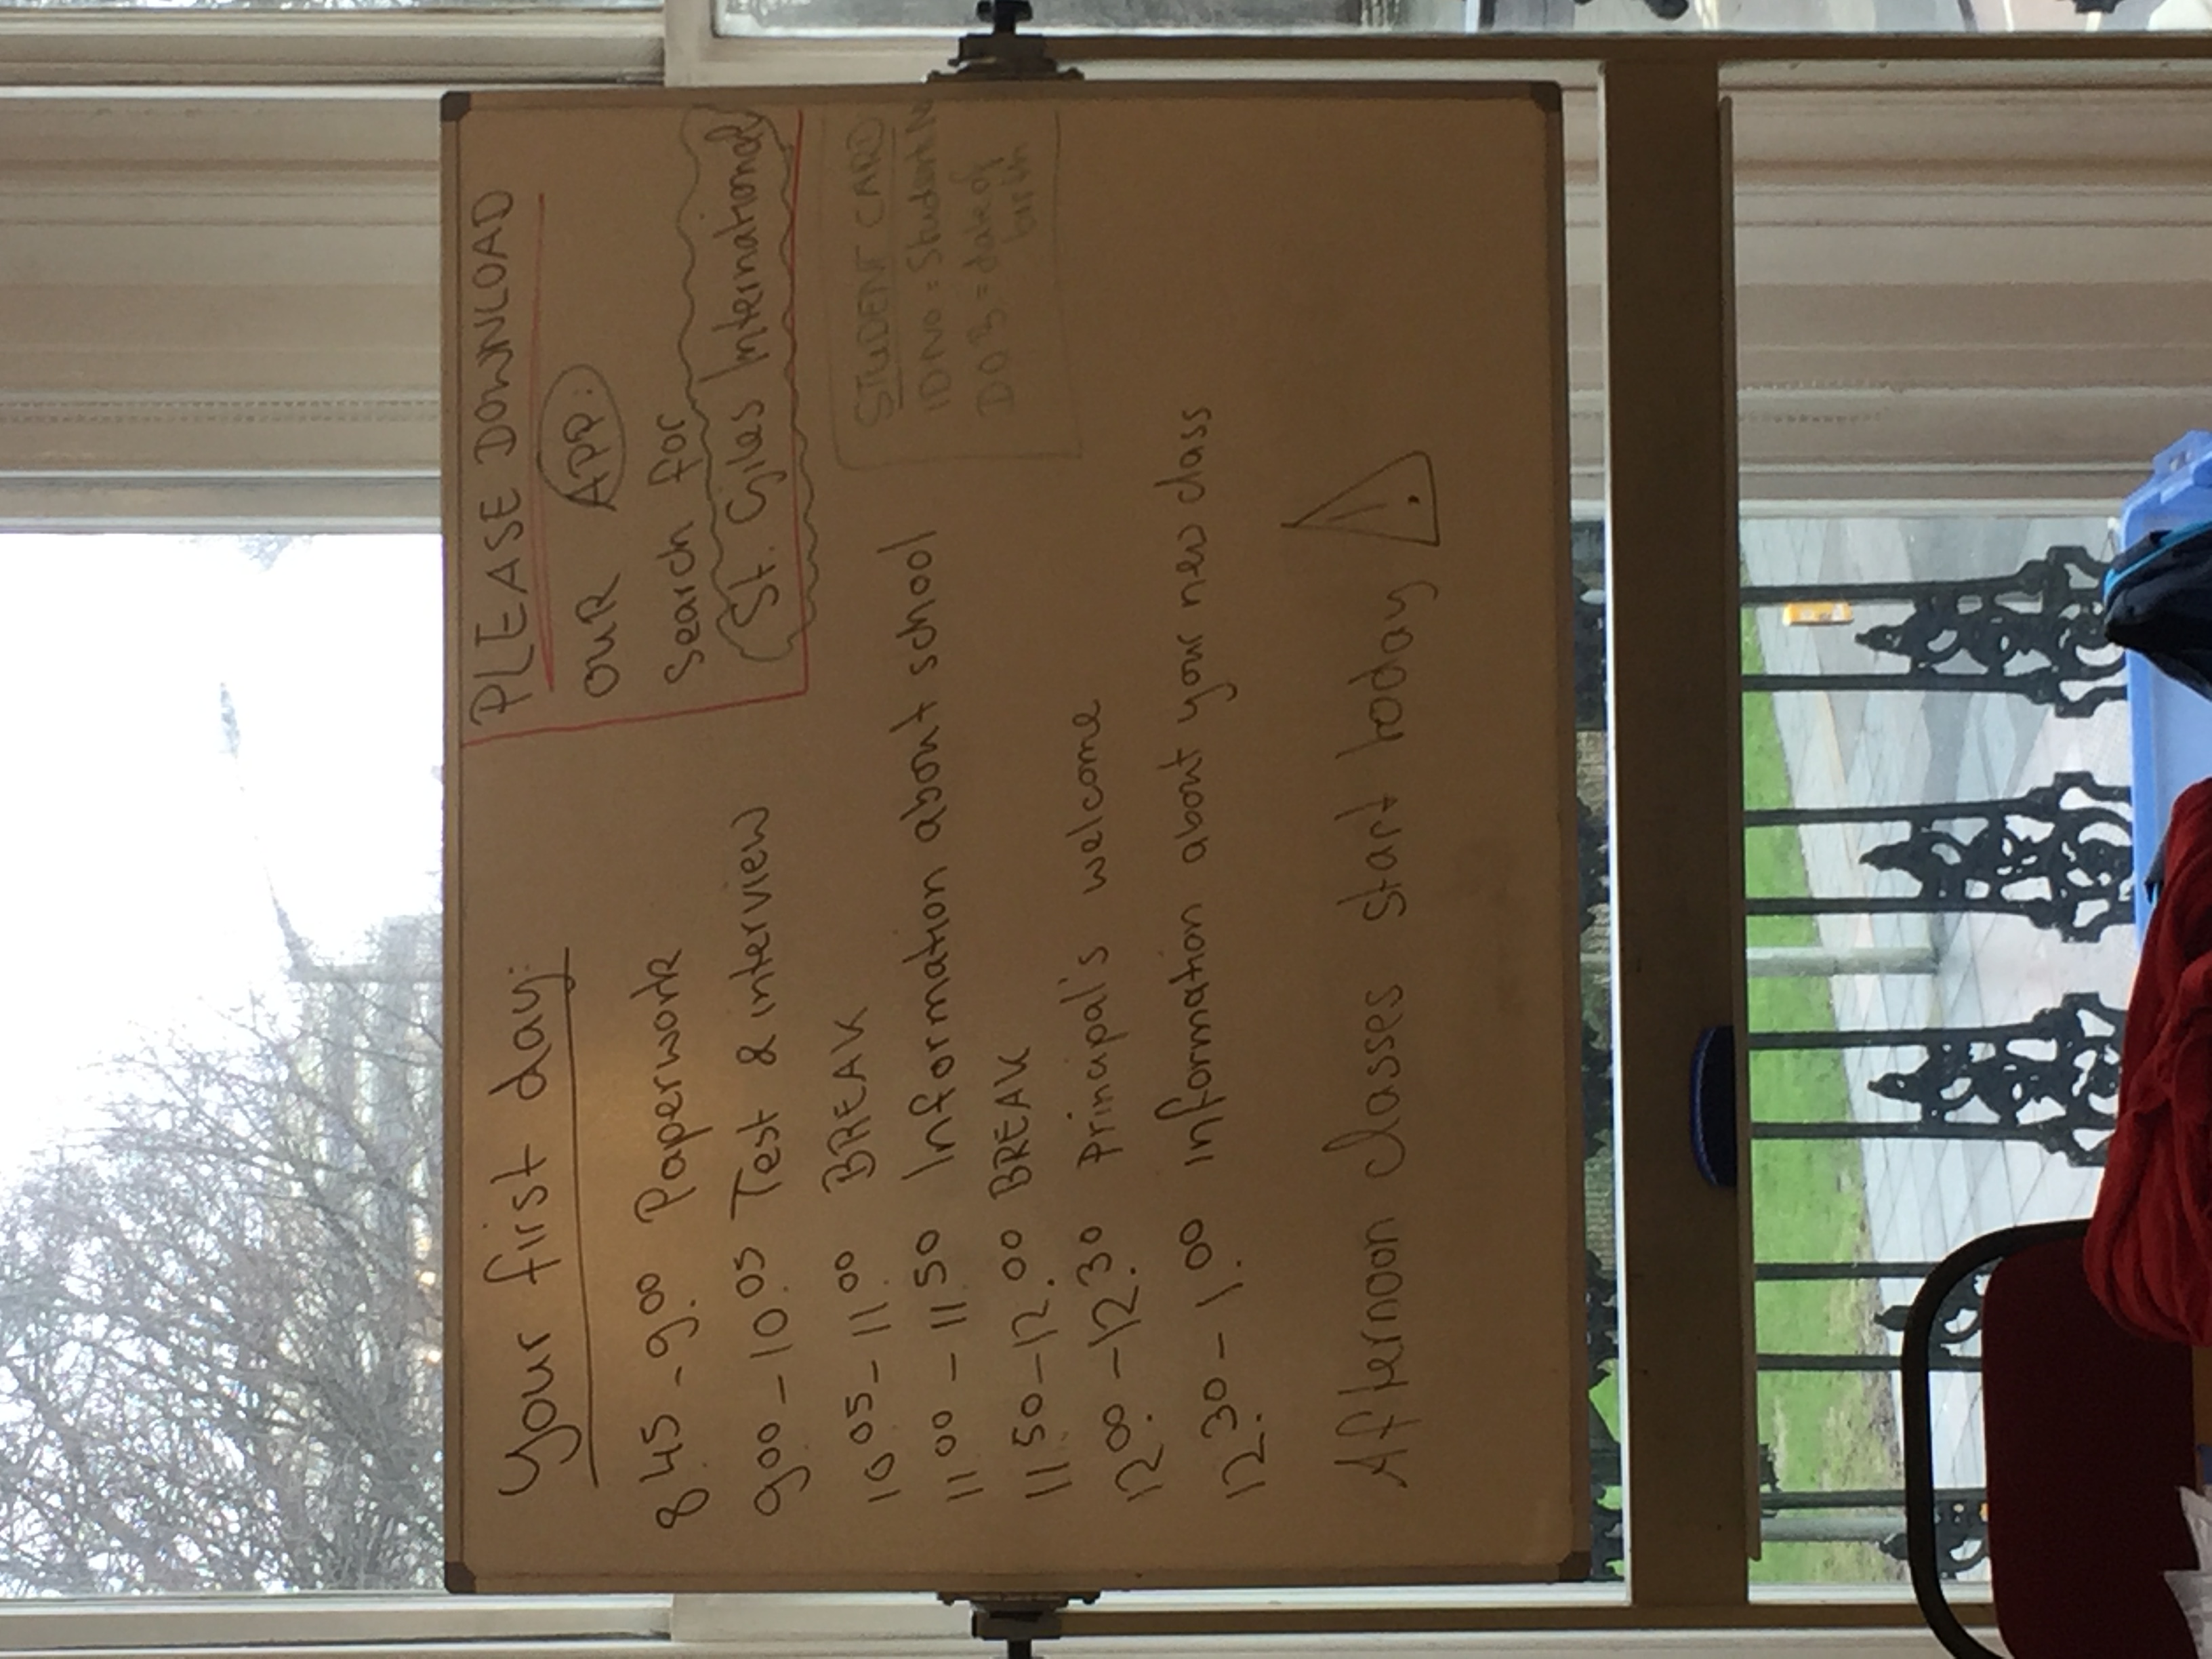 Your first day:
8.45 - 9.00 Paperwork
9.00 - 10.05 Test & interview
10.05 - 11.00 BREAK
11.00 - 11.50 Information about school
11.50 - 12.00 BREAK
12.00 - 12.30 Principal's welcome
12.30 - 1.00 Information about your new class
Afternoon classes start today !
PLEASE DOWNLOAD
OUR APP:
Search for
St. Giles International
STUDENT CARD
ID No = Student No
DOB = date of
birth